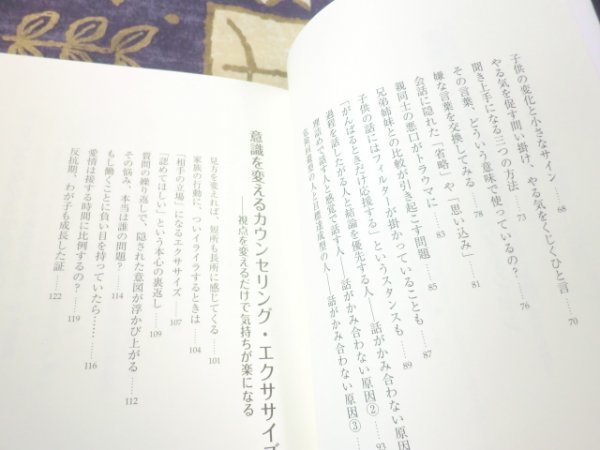 子供の変化と小さなサイン……68
やる気を促す問い掛け、やる気をくじくひと言……70
聞き上手になる三つの方法……73
その言葉、どういう意味で使っているの?……76
嫌な言葉を交換してみる……78
会話に隠れた「省略」や「思い込み」……81
親同士の悪口がトラウマに……85
兄弟姉妹との比較が引き起こす問題……87
子供の話にはフィルターが掛かっていることも……89
「がんばるときだけ応援する」というスタンスも
過程を話したがる人と結論を優先する人――話がかみ合わない原因②……93
理詰めで話す人と感覚で話す人――話がかみ合わない原因③
意識を変えるカウンセリング・エクササイズ
――視点を変えるだけで気持ちが楽になる
見方を変えれば、短所も長所に感じてくる……101
家族の行動に、ついイライラするときは……104
「相手の立場」になるエクササイズ……107
「認めてほしい」という本心の裏返し……109
質問の繰り返しで、隠された意図が浮かび上がる……112
その悩み、本当は誰の問題?……114
もし働くことに負い目を持っていたら……116
愛情は接する時間に比例するの?……119
反抗期、わが子も成長した証……122